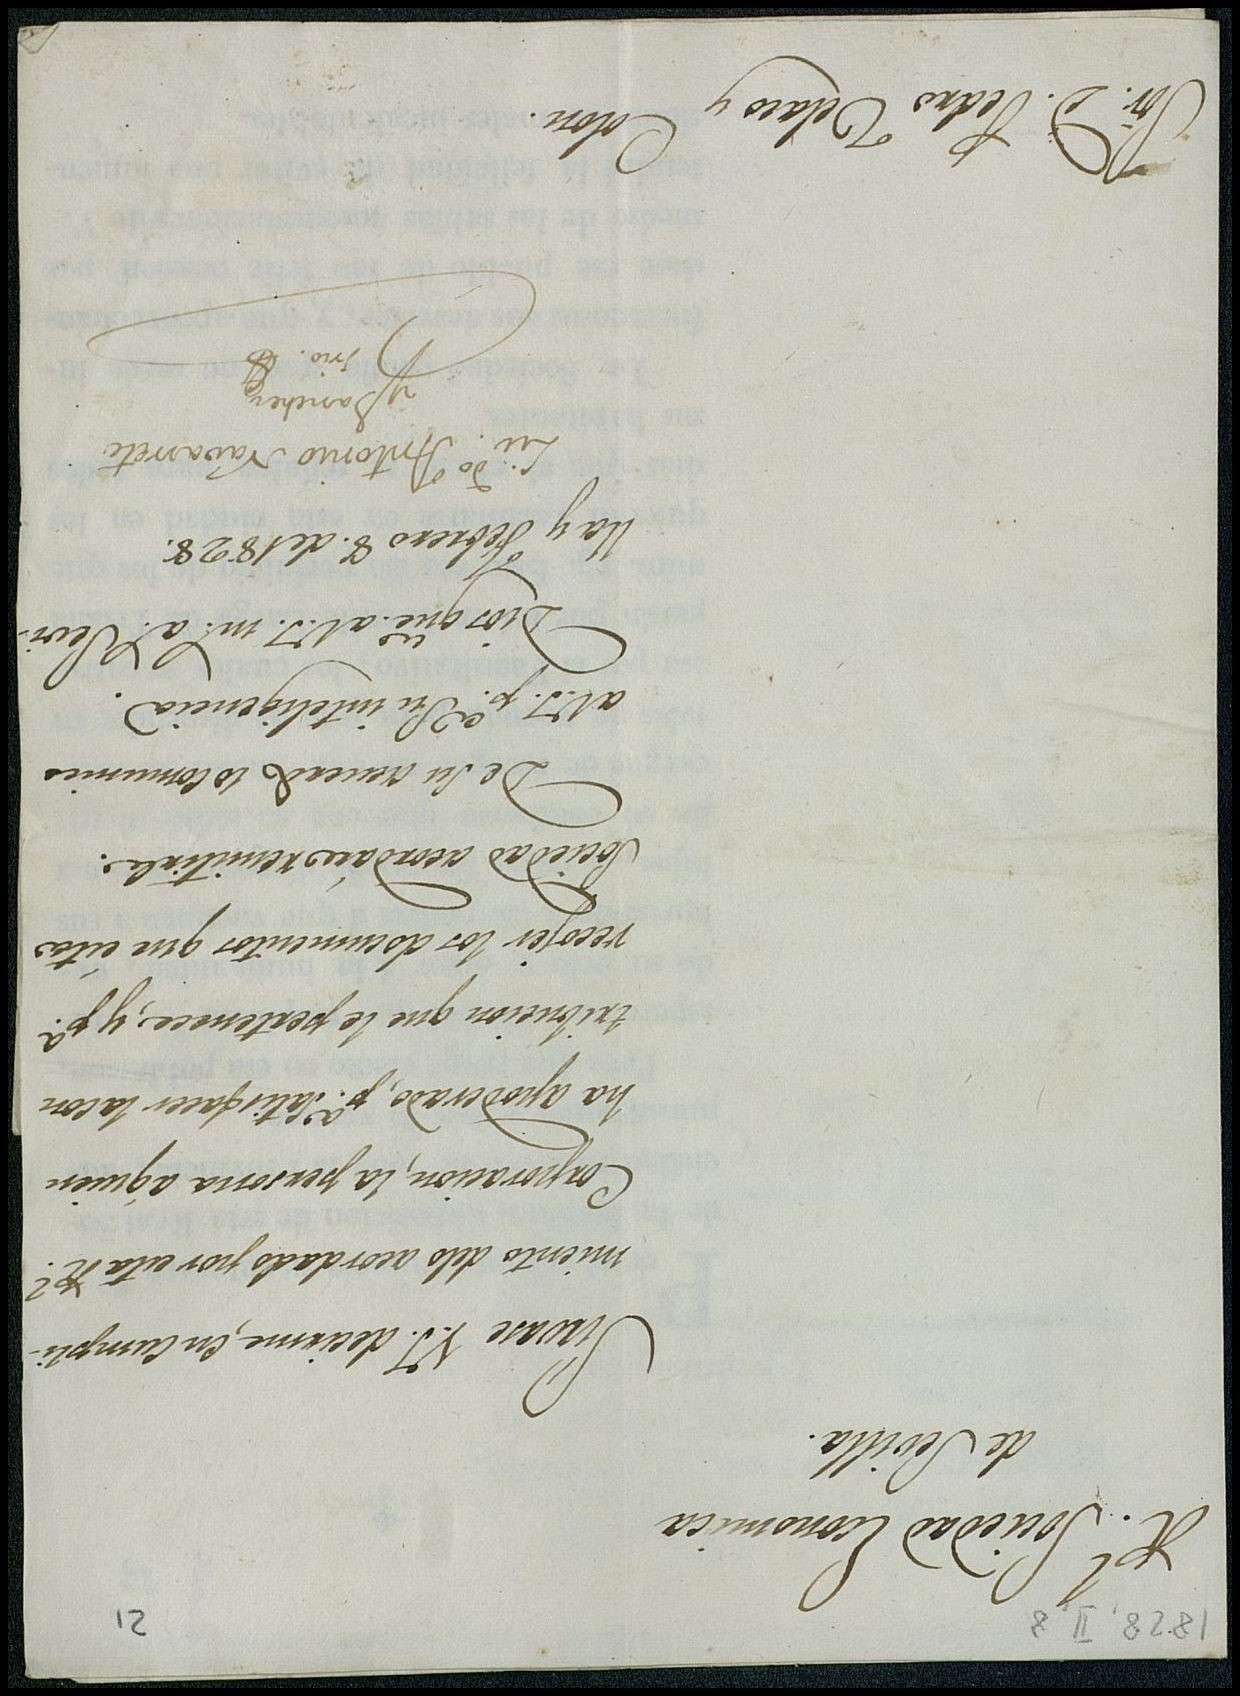 1828, II, 8
12
Rl. Sociedad Economica
de Sevilla.
Sirvase V.S. decirme, en cumpli-
miento delo acordado por esta Rl.
Corporacion, la persona aquien
ha apoderado, pa. satisfacer la con
tribucion que le pertenece, y pa.
recojer los documentos que esta
Sociedad acordáre remitirle.
De su acuerdo lo comunico
a V.S. pa. su inteligencia.
Dios gue. a V.S. ms. as. Sevi-
lla y Febrero 8. de 1828.
Licdo. Antonio Navarrete
y Sanchez
Srio.
Sor. D. Pedro Velasco y
Colon.